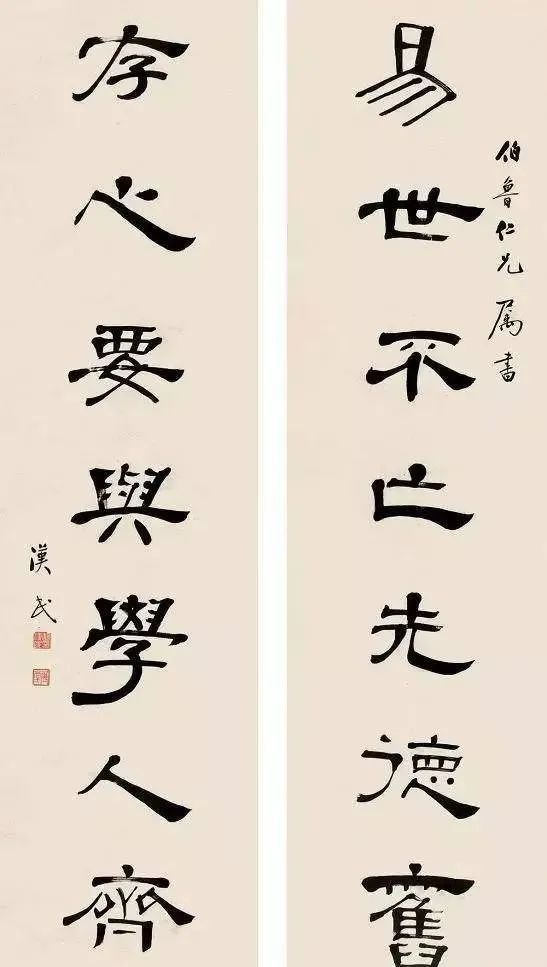 伯魯仁兄屬書
易世不亡先德舊
存心要與學人齊
漢民